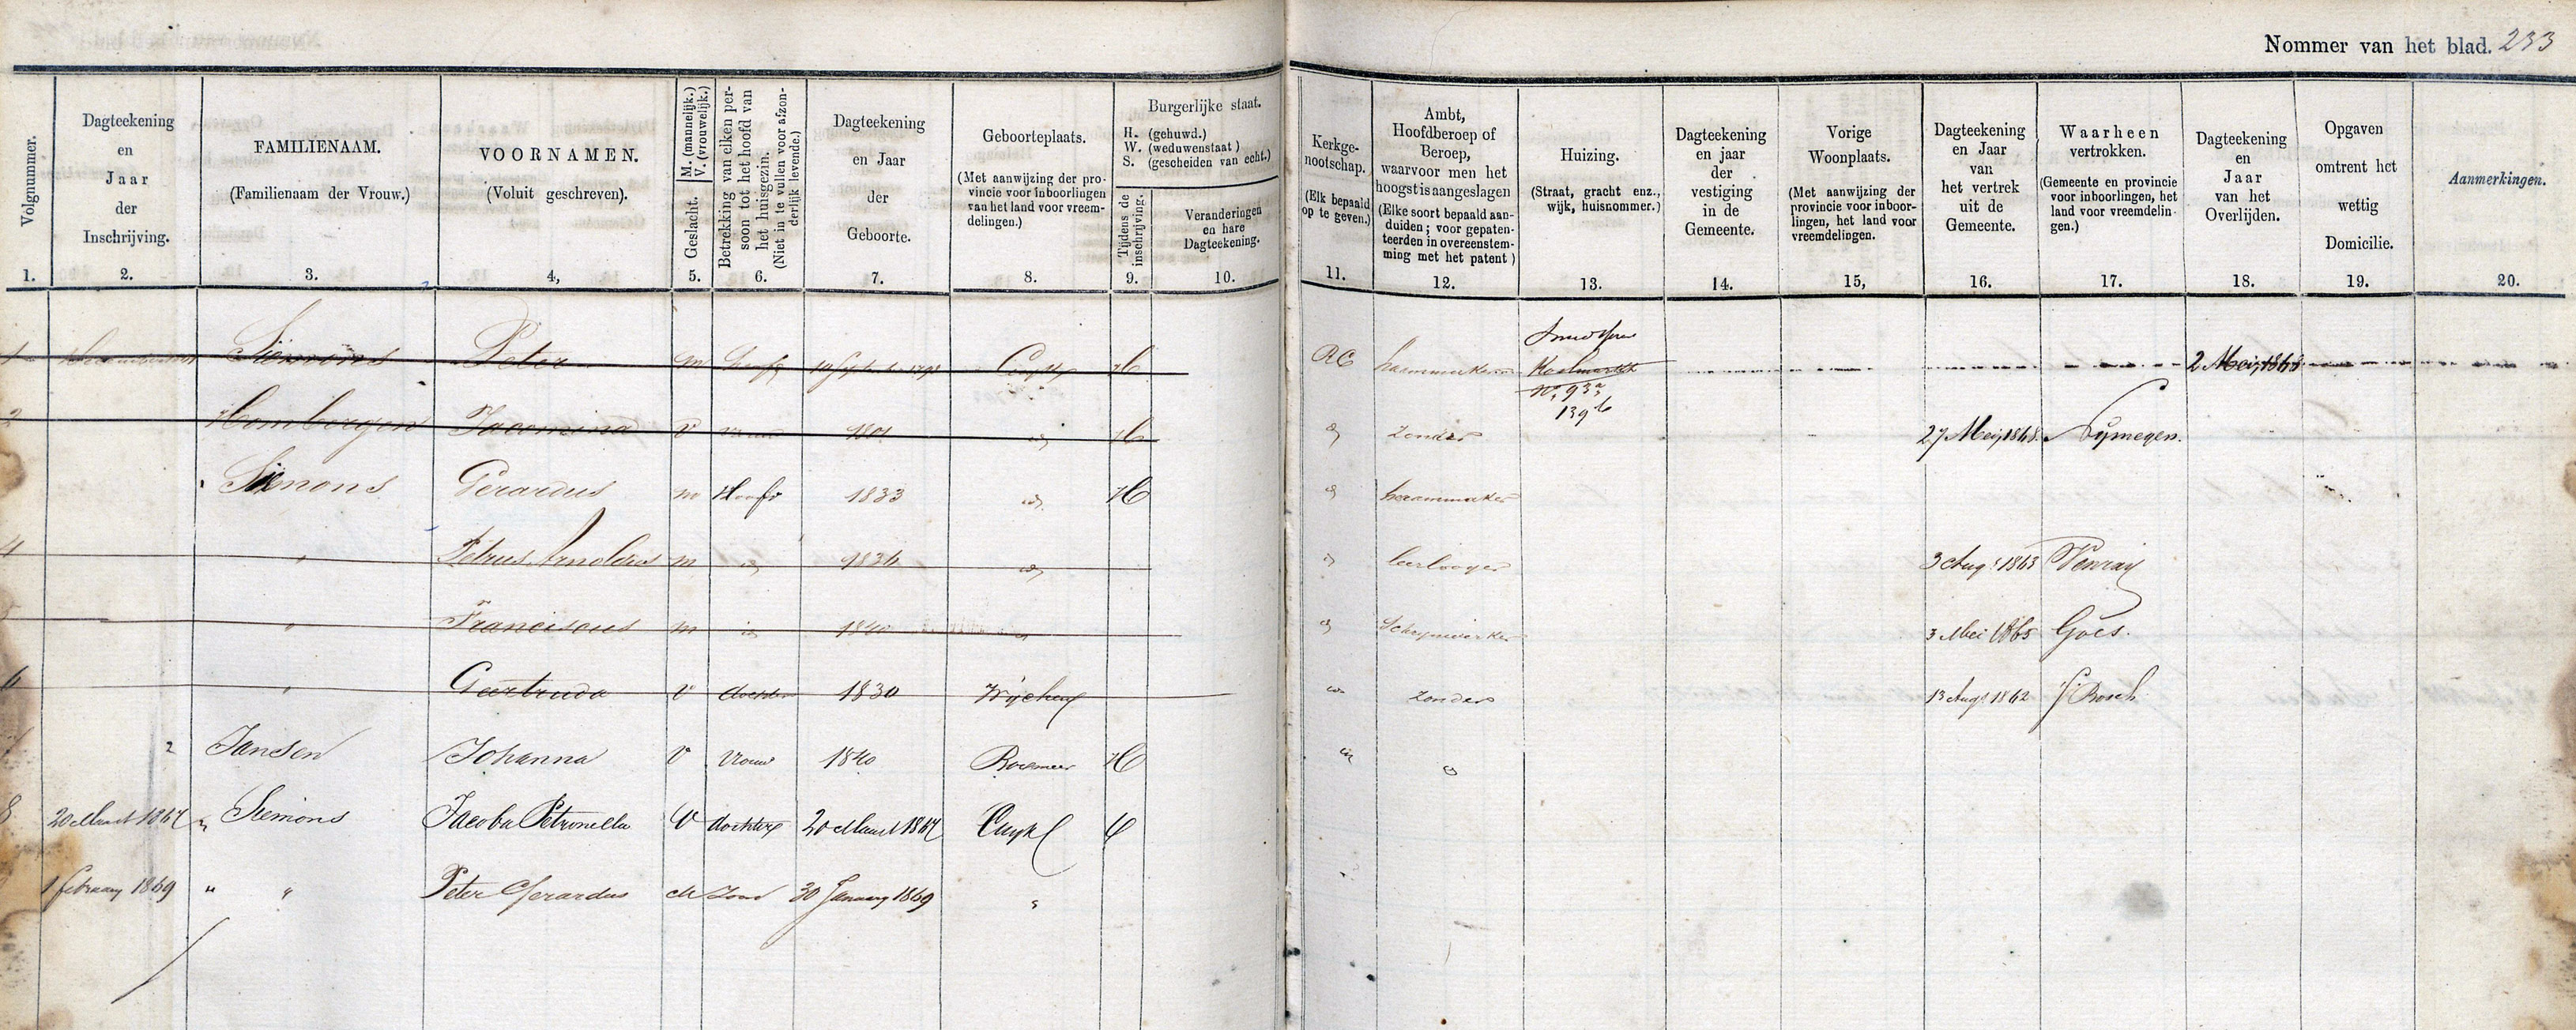 Nommer van het blad. 233
Volgnummer.
Dagteekening
en
Jaar
der
Inschrijving.
FAMILIENAAM.
(Familienaam der Vrouw.)
VOORNAMEN.
(Voluit geschreven).
Geslacht. M. (mannelijk.)
V. (vrouwelijk.)
Betrekking van elken per-
soon tot het hoofd van
het huisgezin.
(Niet in te vullen voor afzon-
derlijk levende.)
Dagteekening
en Jaar
der
Geboorte.
Geboorteplaats.
(Met aanwijzing der pro-
vincie voor inboorlingen
van het land voor vreem-
delingen.)
Burgerlijke staat.
H. (gehuwd.)
W. (weduwenstaat)
S. (gescheiden van echt.)
Tijdens de
inschrijving.
Veranderingen
en hare
Dagteekening.
Kerkge-
nootschap.
(Elk bepaald
op te geven.)
Ambt,
Hoofdberoep of
Beroep,
waarvoor men het
hoogst is aangeslagen
(Elke soort bepaald aan-
duiden; voor gepaten-
teerden in overeenstem-
ming met het patent)
Huizing.
(Straat, gracht enz.,
wijk, huisnommer.)
Dagteekening
en jaar
der
vestiging
in de
Gemeente.
Vorige
Woonplaats.
(Met aanwijzing der
provincie voor inboor-
lingen, het land voor
vreemdelingen.
Dagteekening
en Jaar
van
het vertrek
uit de
Gemeente.
Waarheen
vertrokken.
(Gemeente en provincie
voor inboorlingen, het
land voor vreemdelin-
gen.)
Dagteekening
en
Jaar
van het
Overlijden.
Opgaven
omtrent het
wettig
Domicilie.
Aanmerkingen.
1. 2. 3. 4, 5. 6. 7. 8. 9. 10. 11. 12. 13. 14. 15, 16. 17. 18. 19. 20.
1 Siemons Peter m hoofd Cuyk H RC haammaker Koolmarkt 2 Mei 1868
No. 93a
139b
2 Hombergen Jacomina V vrouw 1801 id H id zonder 27 Mei 1868 Nymegen.
Siemons Gerardus m Hoofd 1833 id H id haammaker
4 " Petrus Arnoldus m id 1836 id id leerlooyer 3 Aug. 1863 Venray
" Franciscus m id 1840 id id Schrijnwerker 3 Mei 1865 Goes.
6 " Geertruda V dochter 1830 Wychen id zonder 13 Aug. 1862 's Bosch
2 Jansen Johanna V vrouw 1840 Boxmeer H id id
8 20 Maart 1867 Siemons Jacoba Petronella V dochter 20 Maart 1867 Cuyk
1 february 1869 " " Peter Gerardus M zoon 30 January 1869 "